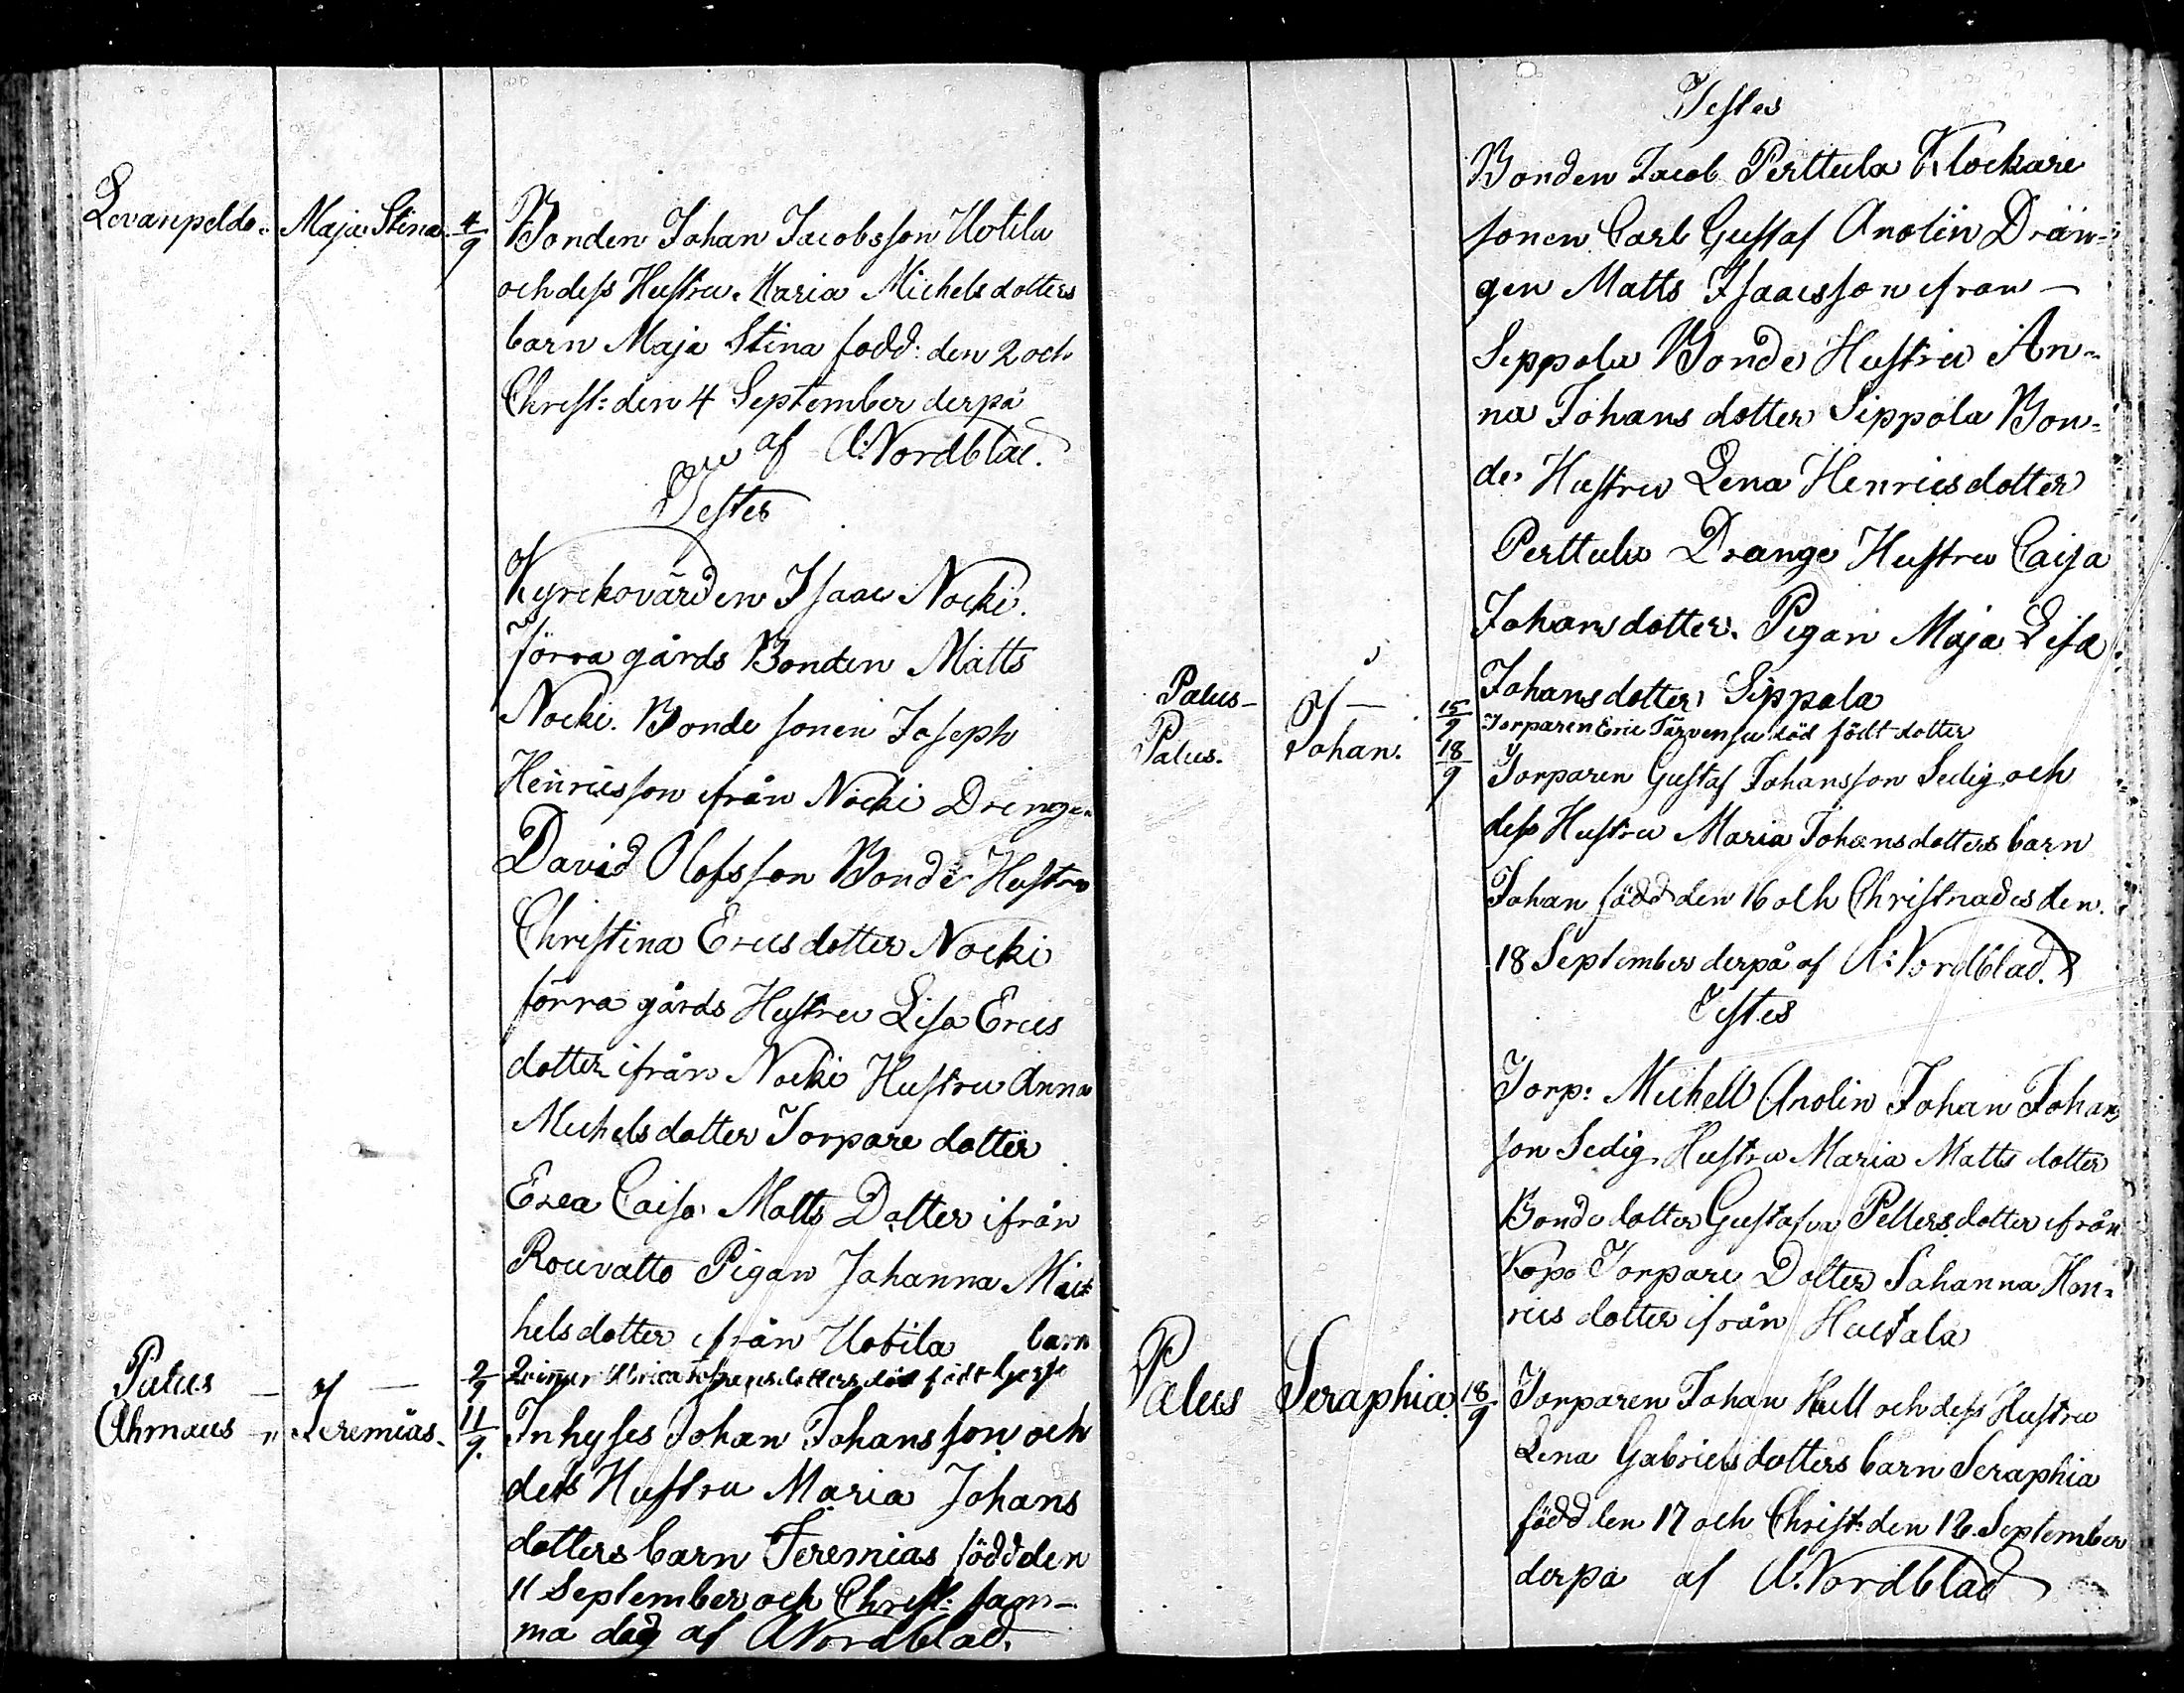 Levanpeldo. Maja Stina. 4/9 Bonden Johan Jacobsson Uotila
och dess Hustru Maria Michelsdotters
barn Maja Stina född: den 2 och
Christ: den 4 September derpå
af A:Nordblad.
Testes
Kyrckovärden Isaac Nocki.
förra gårds Bonden Matts
Nocki. Bonde sonen Joseph
Henricsson ifrån Nocki Drenge.
David Olofsson Bonde Hustru
Christina Ericsdotter Nocki
förra gårds Hustru Lisa Erics
dotter ifrån Nocki Hustru Anna
Michelsdotter Torpare dotter
Erea Caisa Matts Dotter ifrån
Rouvatto Pigan Johanna Mic
helsdotter ifrån Uotila barn
Palus — of — 2/9 Ulrica Johansdotters död födt
Ahmaus " Jeremias. 11/9. Inhyses Johan Johansson och
dess Hustru Maria Johans
dotters barn Jeremias född den
11 September och Christ: sam-
ma dag af A Nordblad.
Testes
Bonden Jacob Perttula Klockare
sonen Carl Gustaf Anolin Drän-
gen Matts Isaacsson ifran —
Seppola Bonde Hustru An-
na Johans dotter Sippola Bon-
de Hustru Lena Henricsdotter
Perttula Drange Hustru Caisa
Johansdotter. Pigan Maja Lisa
Johansdotter Sippola
Palus — of — 15/9 Torparen Eric Tärvensu död födt dotter
Palus. Johan. 18/9 Torparen Gustaf Johansson Sedig och
dess Hustru Maria Johansdotters barn
Johan född den 16 och Christnades den
18 September derpå af A:Nordblad.
Testes
Torp: Michell Anolin Johan Johans
son Sedig Hustru Maria Matts dotter
Bonde dotter Gustafva Pettersdotter ifrån
Kopo Torpare Dotter Johanna Hen-
rics dotter ifrån Huitala
Palus Seraphia 18/9 Torparen Johan Hull och dess Hustru
Lena Gabrielsdotters barn Seraphia
född den 17 och Christ: den 18 September
derpa af A.Nordblad